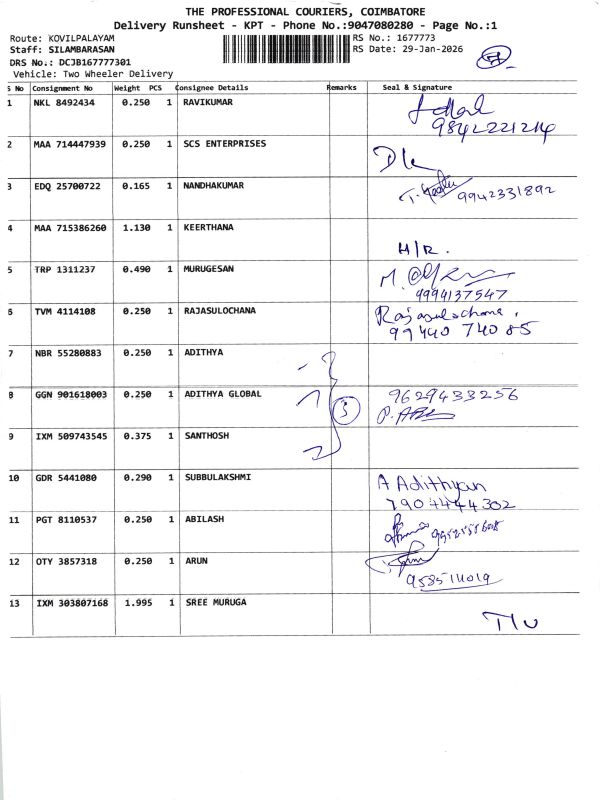 THE PROFESSIONAL COURIERS, COIMBATORE
Delivery Runsheet - KPT - Phone No.:9047080280 - Page No.:1
Route: KOVILPALAYAM RS No.: 1677773
Staff: SILAMBARASAN RS Date: 29-Jan-2026
DRS No.: DCJB167777301
Vehicle: Two Wheeler Delivery
S No Consignment No Weight PCS Consignee Details Remarks Seal & Signature
1 NKL 8492434 0.250 1 RAVIKUMAR
9842221214
2 MAA 714447939 0.250 1 SCS ENTERPRISES
3 EDQ 25700722 0.165 1 NANDHAKUMAR 9942331892
4 MAA 715386260 1.130 1 KEERTHANA
H/R.
5 TRP 1311237 0.490 1 MURUGESAN
9994137547
6 TVM 4114108 0.250 1 RAJASULOCHANA Rajasulochana.
99440 74085
7 NBR 55280883 0.250 1 ADITHYA
8 GGN 901618003 0.250 1 ADITHYA GLOBAL 3 9629433256
9 IXM 509743545 0.375 1 SANTHOSH
10 GDR 5441080 0.290 1 SUBBULAKSHMI A Adithyan
7904444302
11 PGT 8110537 0.250 1 ABILASH
12 OTY 3857318 0.250 1 ARUN
13 IXM 303807168 1.995 1 SREE MURUGA